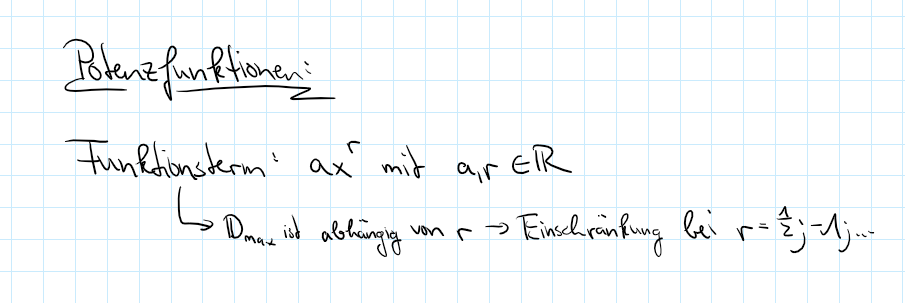 Potenzfunktionen:
Funktionsterm: ax^r mit a,r ∈ ℝ
↳ 𝔻max ist abhängig von r → Einschränkung bei r = 1/2; -1; ...